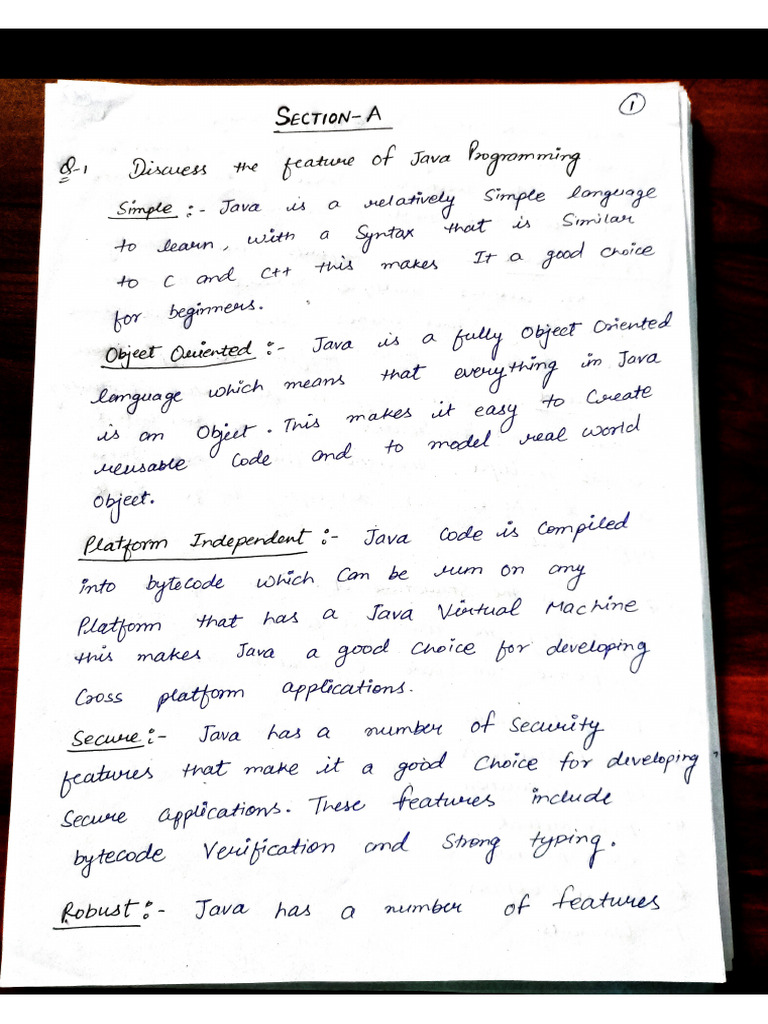 SECTION-A
1
Q-1 Discuess the feature of Java Programming
Simple :- Java is a relatively Simple language
to learn, with a Syntax that is Similar
to C and C++ this makes It a good choice
for beginners.
Object Oriented :- Java is a fully Object Oriented
language which means that everything in Java
is an Object. This makes it easy to Create
reusable Code and to model real world
Object.
Platform Independent :- Java Code is Compiled
into bytecode which Can be run on any
Platform that has a Java Virtual Machine
this makes Java a good Choice for developing
Cross platform applications.
Secure :- Java has a number of Security
features that make it a good Choice for developing
Secure applications. These features include
bytecode Verification and Strong typing.
Robust :- Java has a number of features